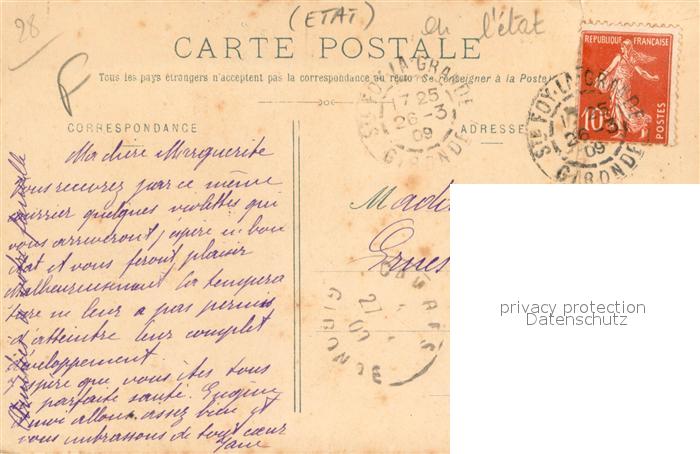 28
(ETAT) en l'état
CARTE POSTALE
Tous les pays étrangers n'acceptent pas la correspondance au recto (Se renseigner à la Poste)
CORRESPONDANCE
ADRESSE
REPUBLIQUE FRANÇAISE
10
POSTES
STE FOY-LA-GRANDE
17 25
26-3
09
GIRONDE
STE FOY-LA-GRANDE
17 25
26-3
09
GIRONDE
Ma chère Marguerite
Vous recevrez par ce même
courrier quelques violettes qui
vous arriveront j'espère en bon
état et vous feront plaisir
Malheureusement la tempéra
ture ne leur a pas permis
d'atteindre leur complet
développement.
J'espère que vous êtes tous
parfaite santé. Eugène
et moi allons assez bien et
vous embrassons de tout cœur
Jane
Mad
Ernes
27
GIRONDE
privacy protection
Datenschutz